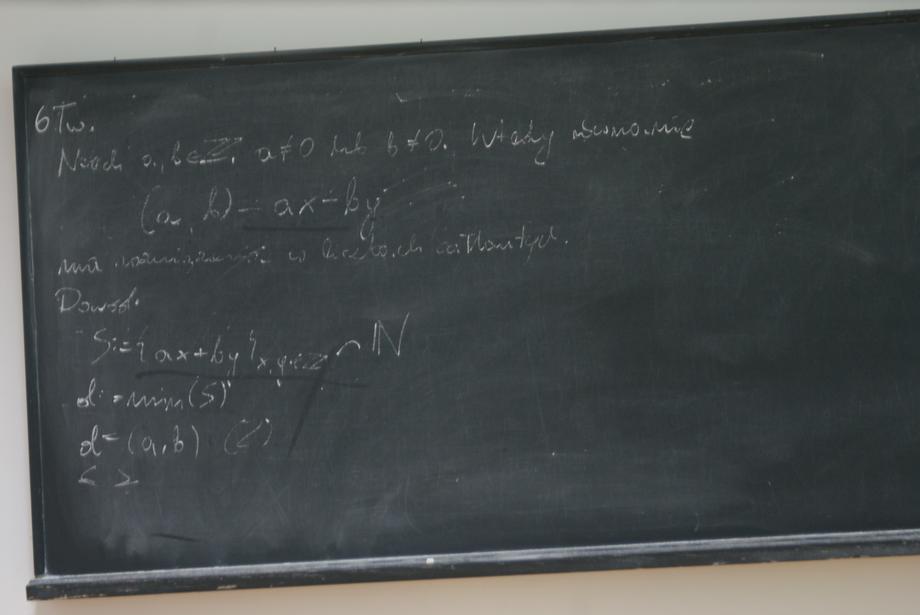 6 Tw.
Niech a, b ∈ ℤ, a ≠ 0 lub b ≠ 0. Wtedy równanie
(a, b) = ax + by
ma rozwiązanie w liczbach całkowitych.
Dowód.
S := {ax + by}x, y ∈ ℤ ∩ ℕ
d := min(S)
d = (a, b) (?)
≤ ≥